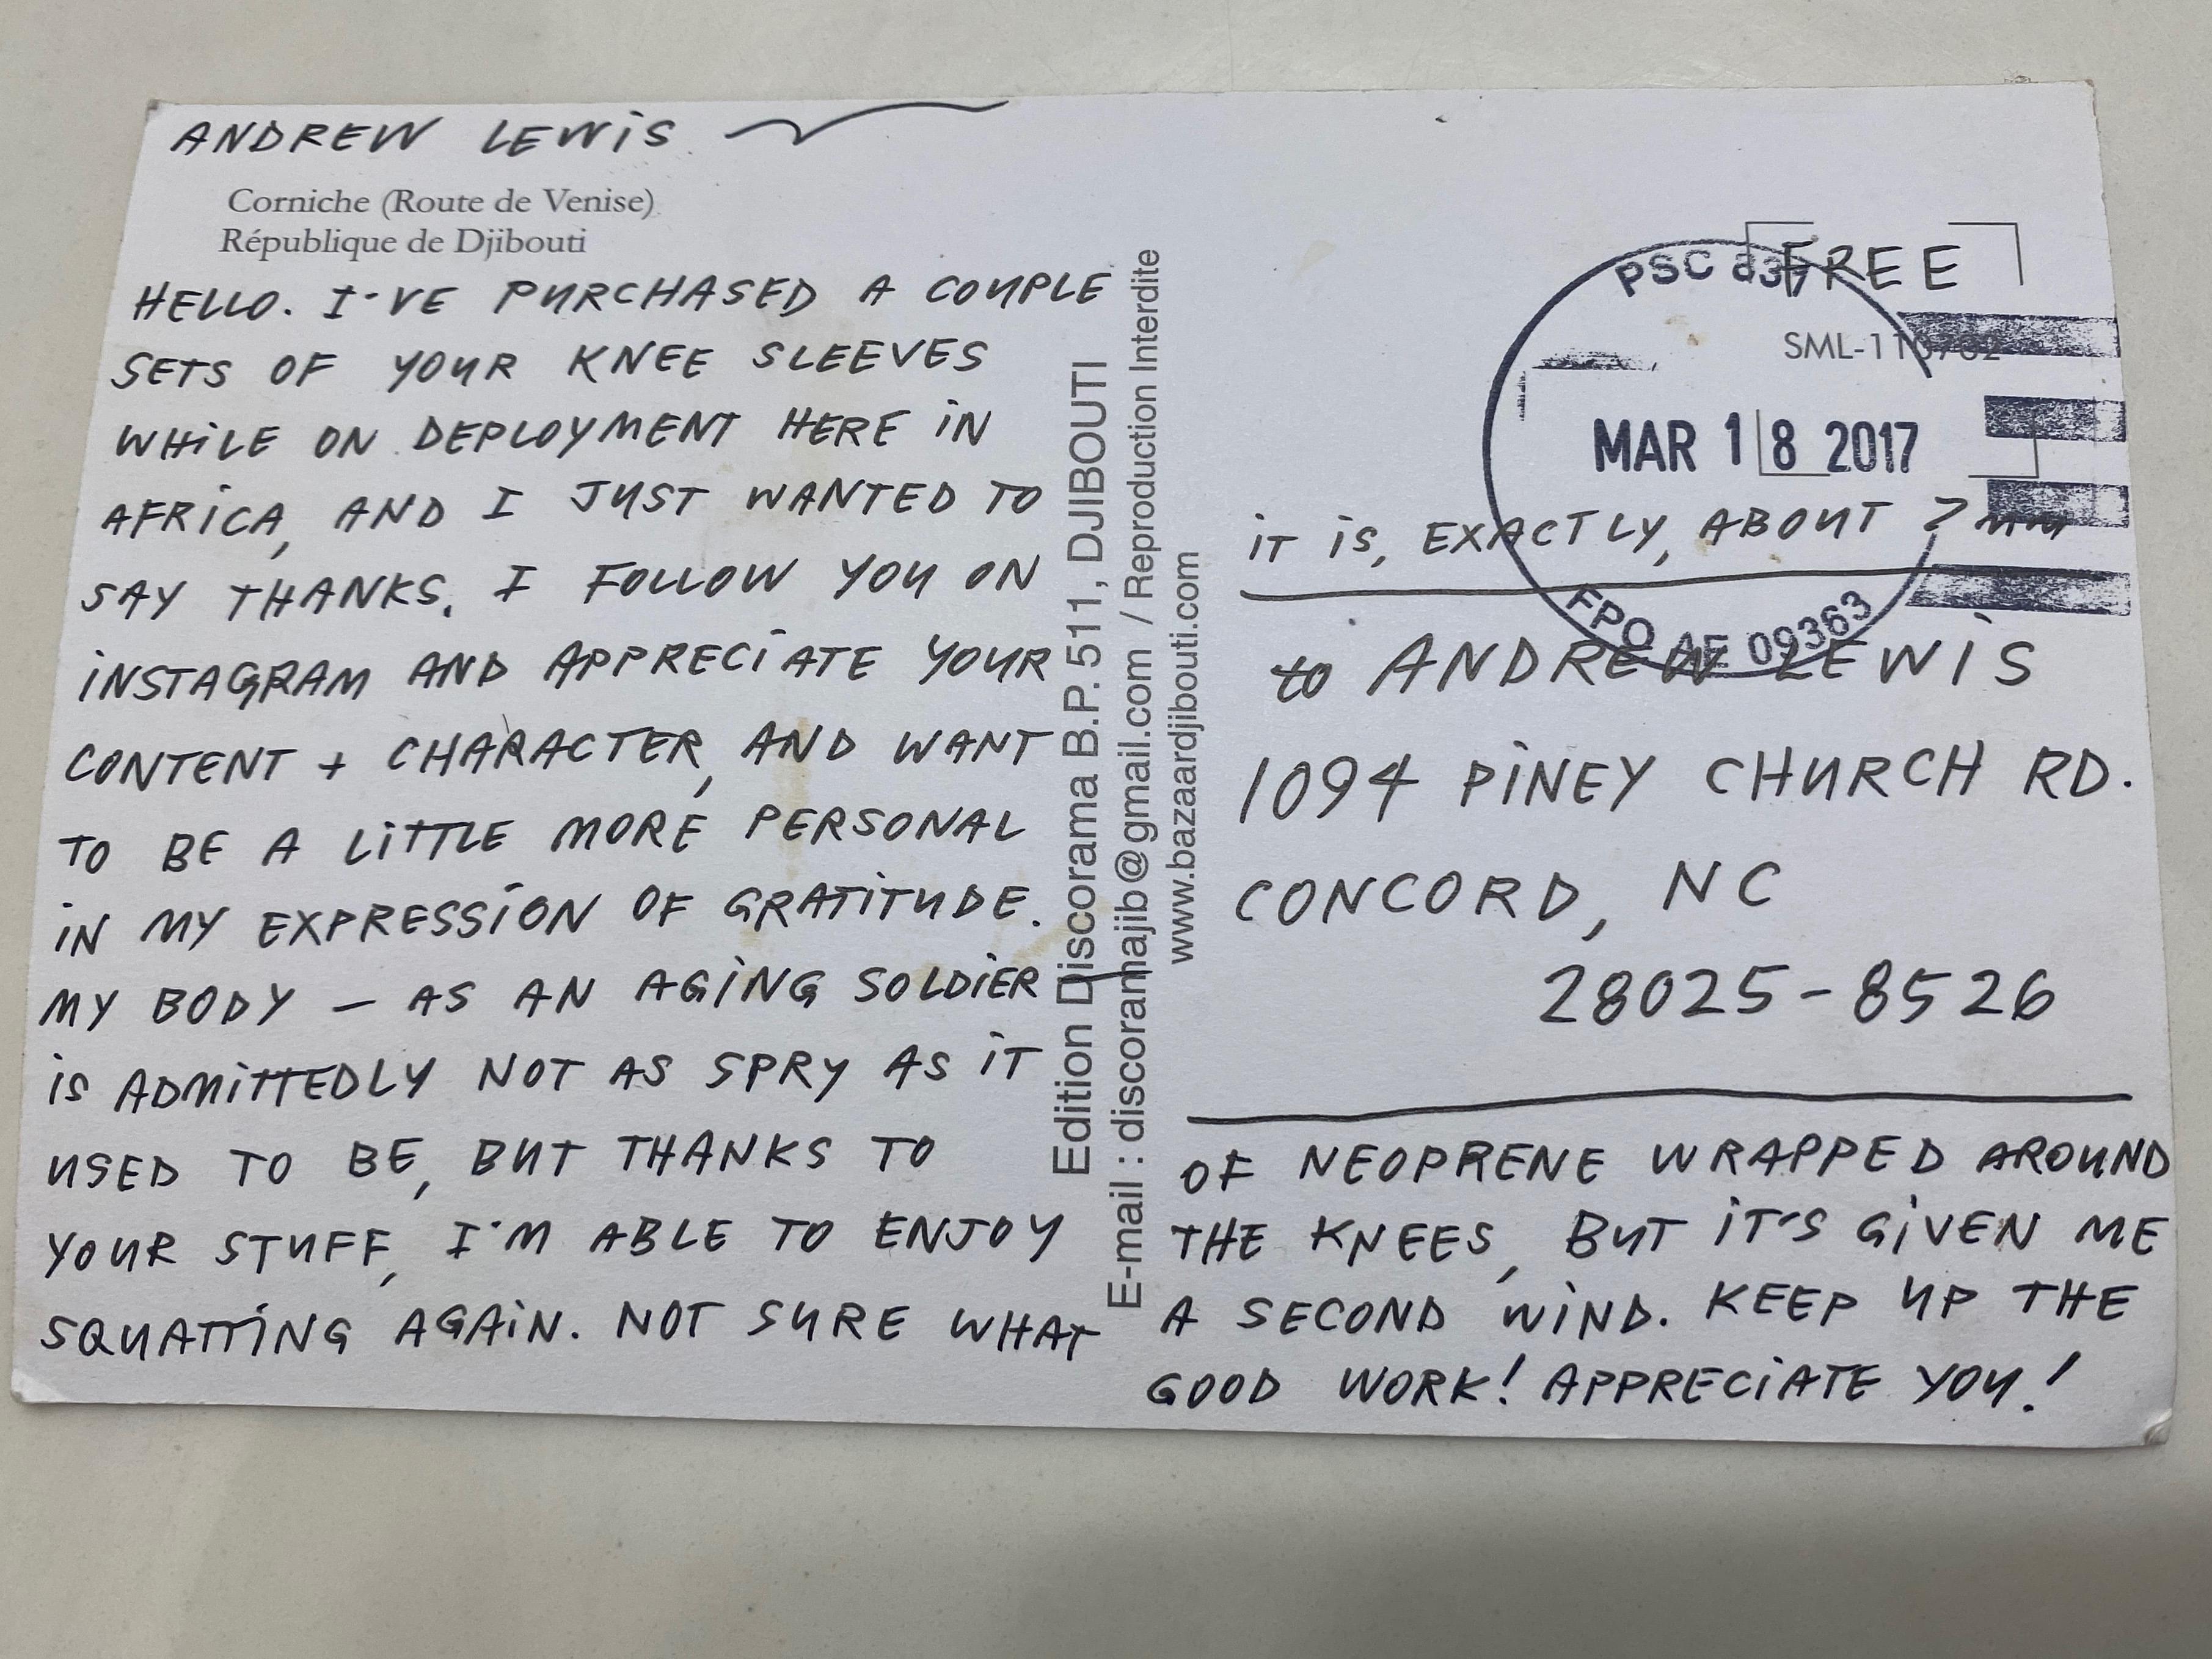 ANDREW LEWIS
Corniche (Route de Venise)
République de Djibouti
HELLO. I'VE PURCHASED A COUPLE
SETS OF YOUR KNEE SLEEVES
WHILE ON DEPLOYMENT HERE IN
AFRICA, AND I JUST WANTED TO
SAY THANKS. I FOLLOW YOU ON
INSTAGRAM AND APPRECIATE YOUR
CONTENT + CHARACTER, AND WANT
TO BE A LITTLE MORE PERSONAL
IN MY EXPRESSION OF GRATITUDE.
MY BODY — AS AN AGING SOLDIER —
IS ADMITTEDLY NOT AS SPRY AS IT
USED TO BE, BUT THANKS TO
YOUR STUFF, I'M ABLE TO ENJOY
SQUATTING AGAIN. NOT SURE WHAT
Edition Discorama B.P. 511, DJIBOUTI
E-mail : discoramajib@gmail.com / Reproduction Interdite
www.bazaardjibouti.com
FREE
PSC
MAR 18 2017
FPO AE 09363
IT IS, EXACTLY, ABOUT 7mm
to ANDREW LEWIS
1094 PINEY CHURCH RD.
CONCORD, NC
28025-8526
OF NEOPRENE WRAPPED AROUND
THE KNEES, BUT IT'S GIVEN ME
A SECOND WIND. KEEP UP THE
GOOD WORK! APPRECIATE YOU!